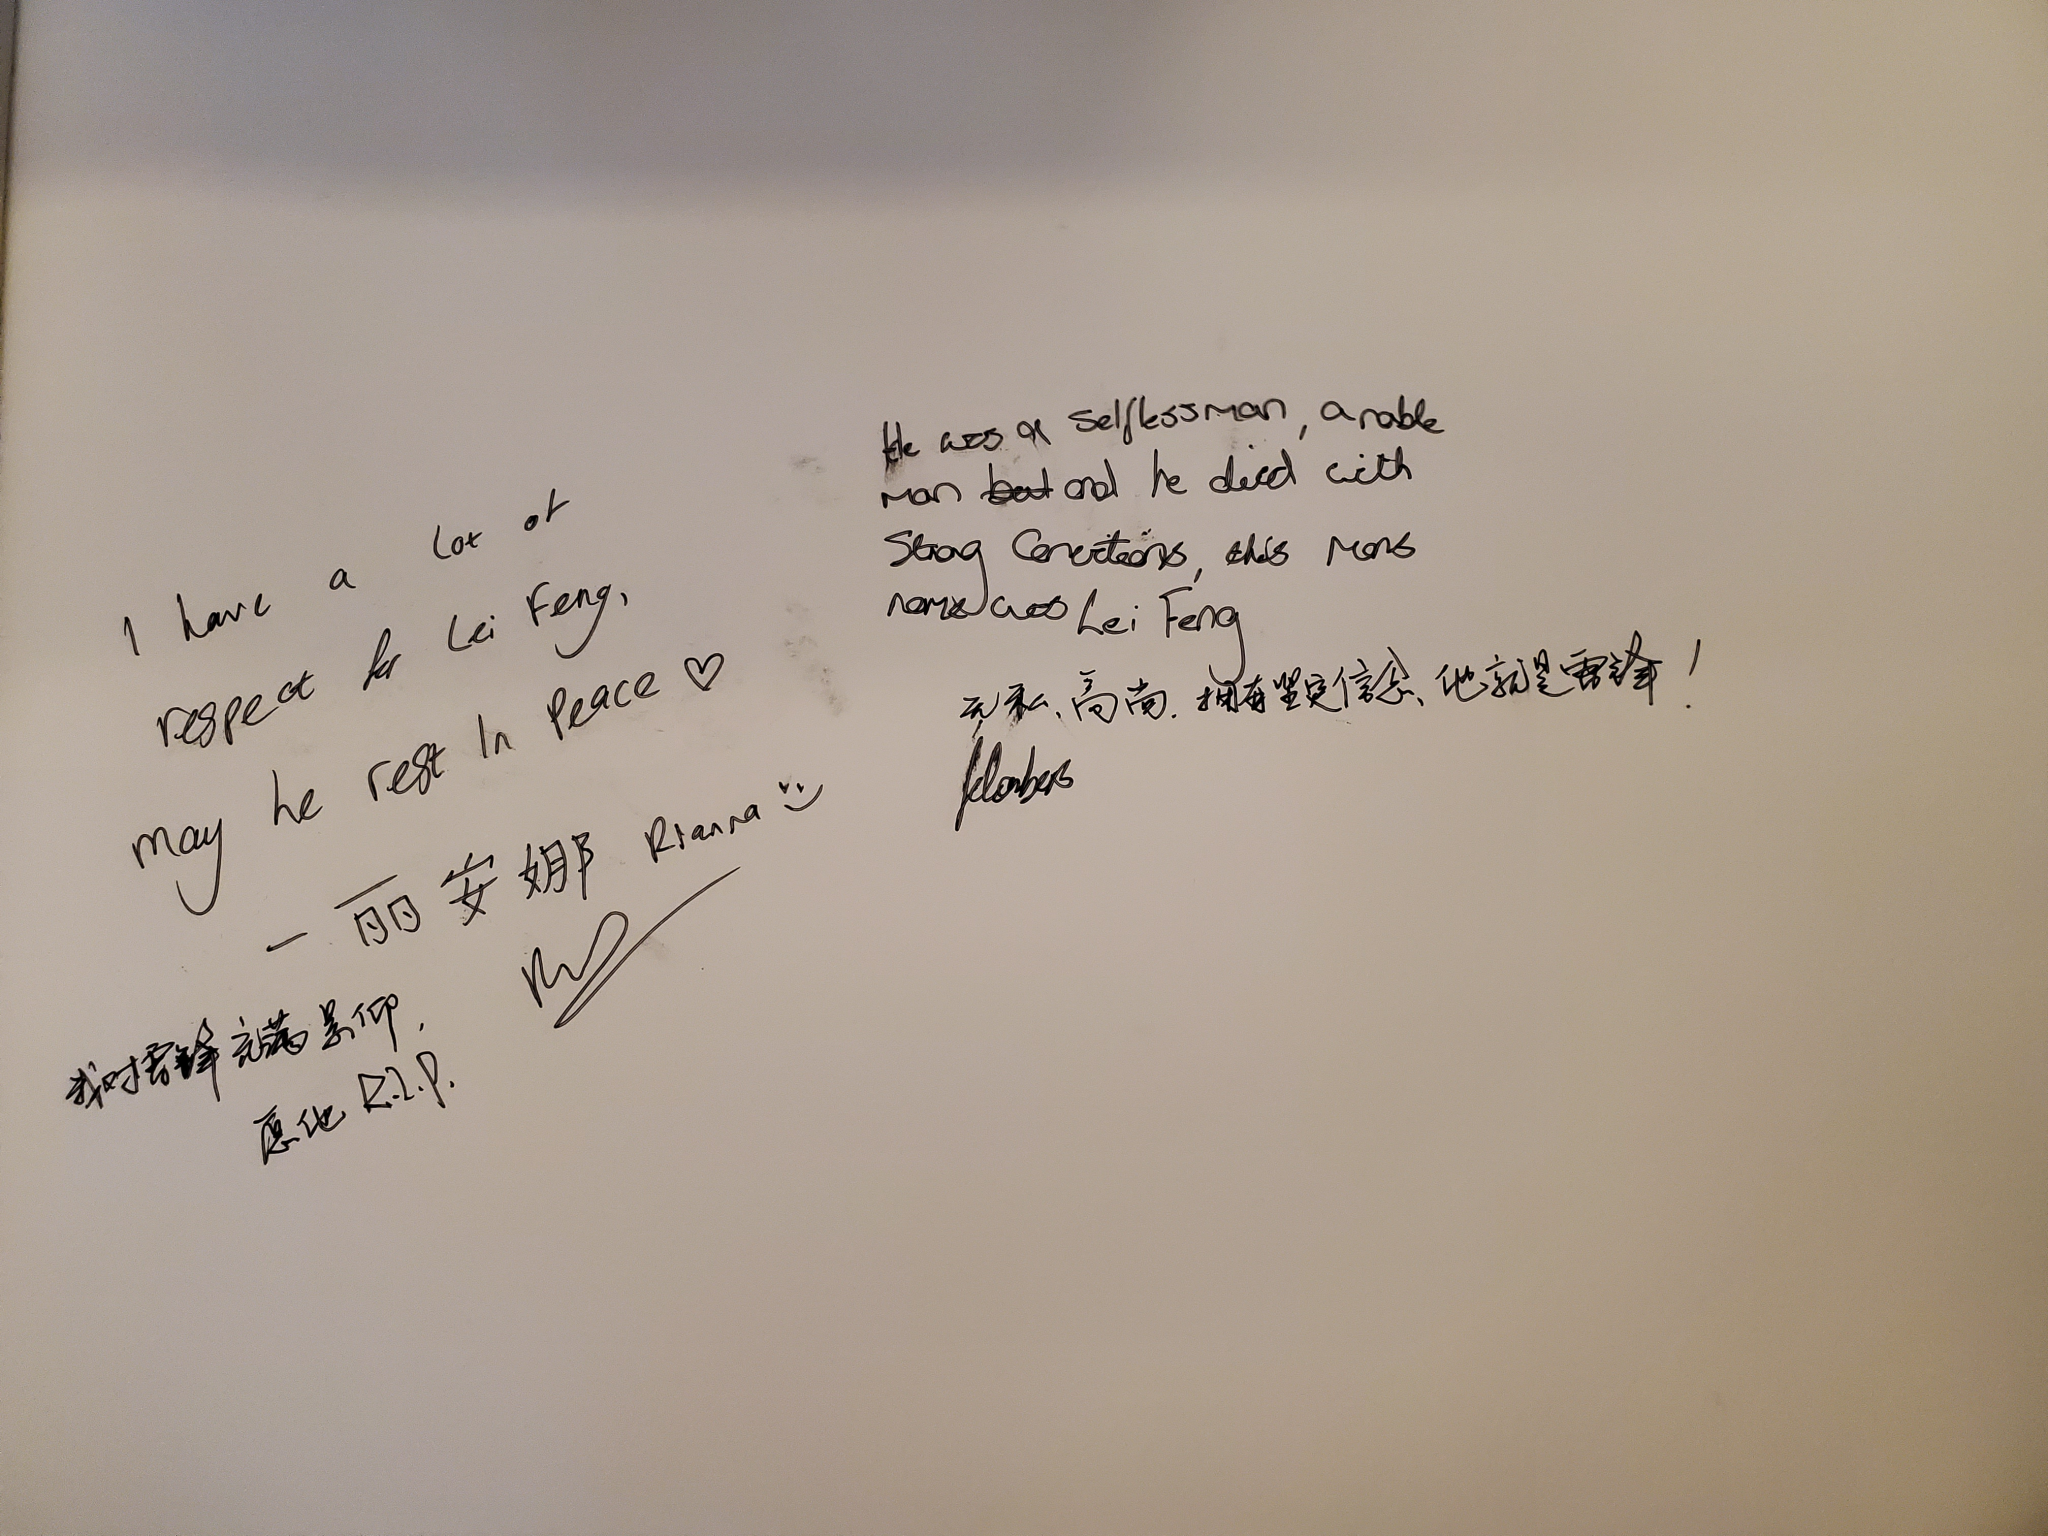 I have a lot of
respect for Lei Feng,
may he rest In Peace ♡
一 丽安娜 Rianna
我对雷锋充满景仰,
愿他 R.I.P.
He was a selfless man, a noble
man but and he died with
Strong Convictions, this mans
name was Lei Feng
无私、高尚、拥有坚定信念、他就是雷锋!